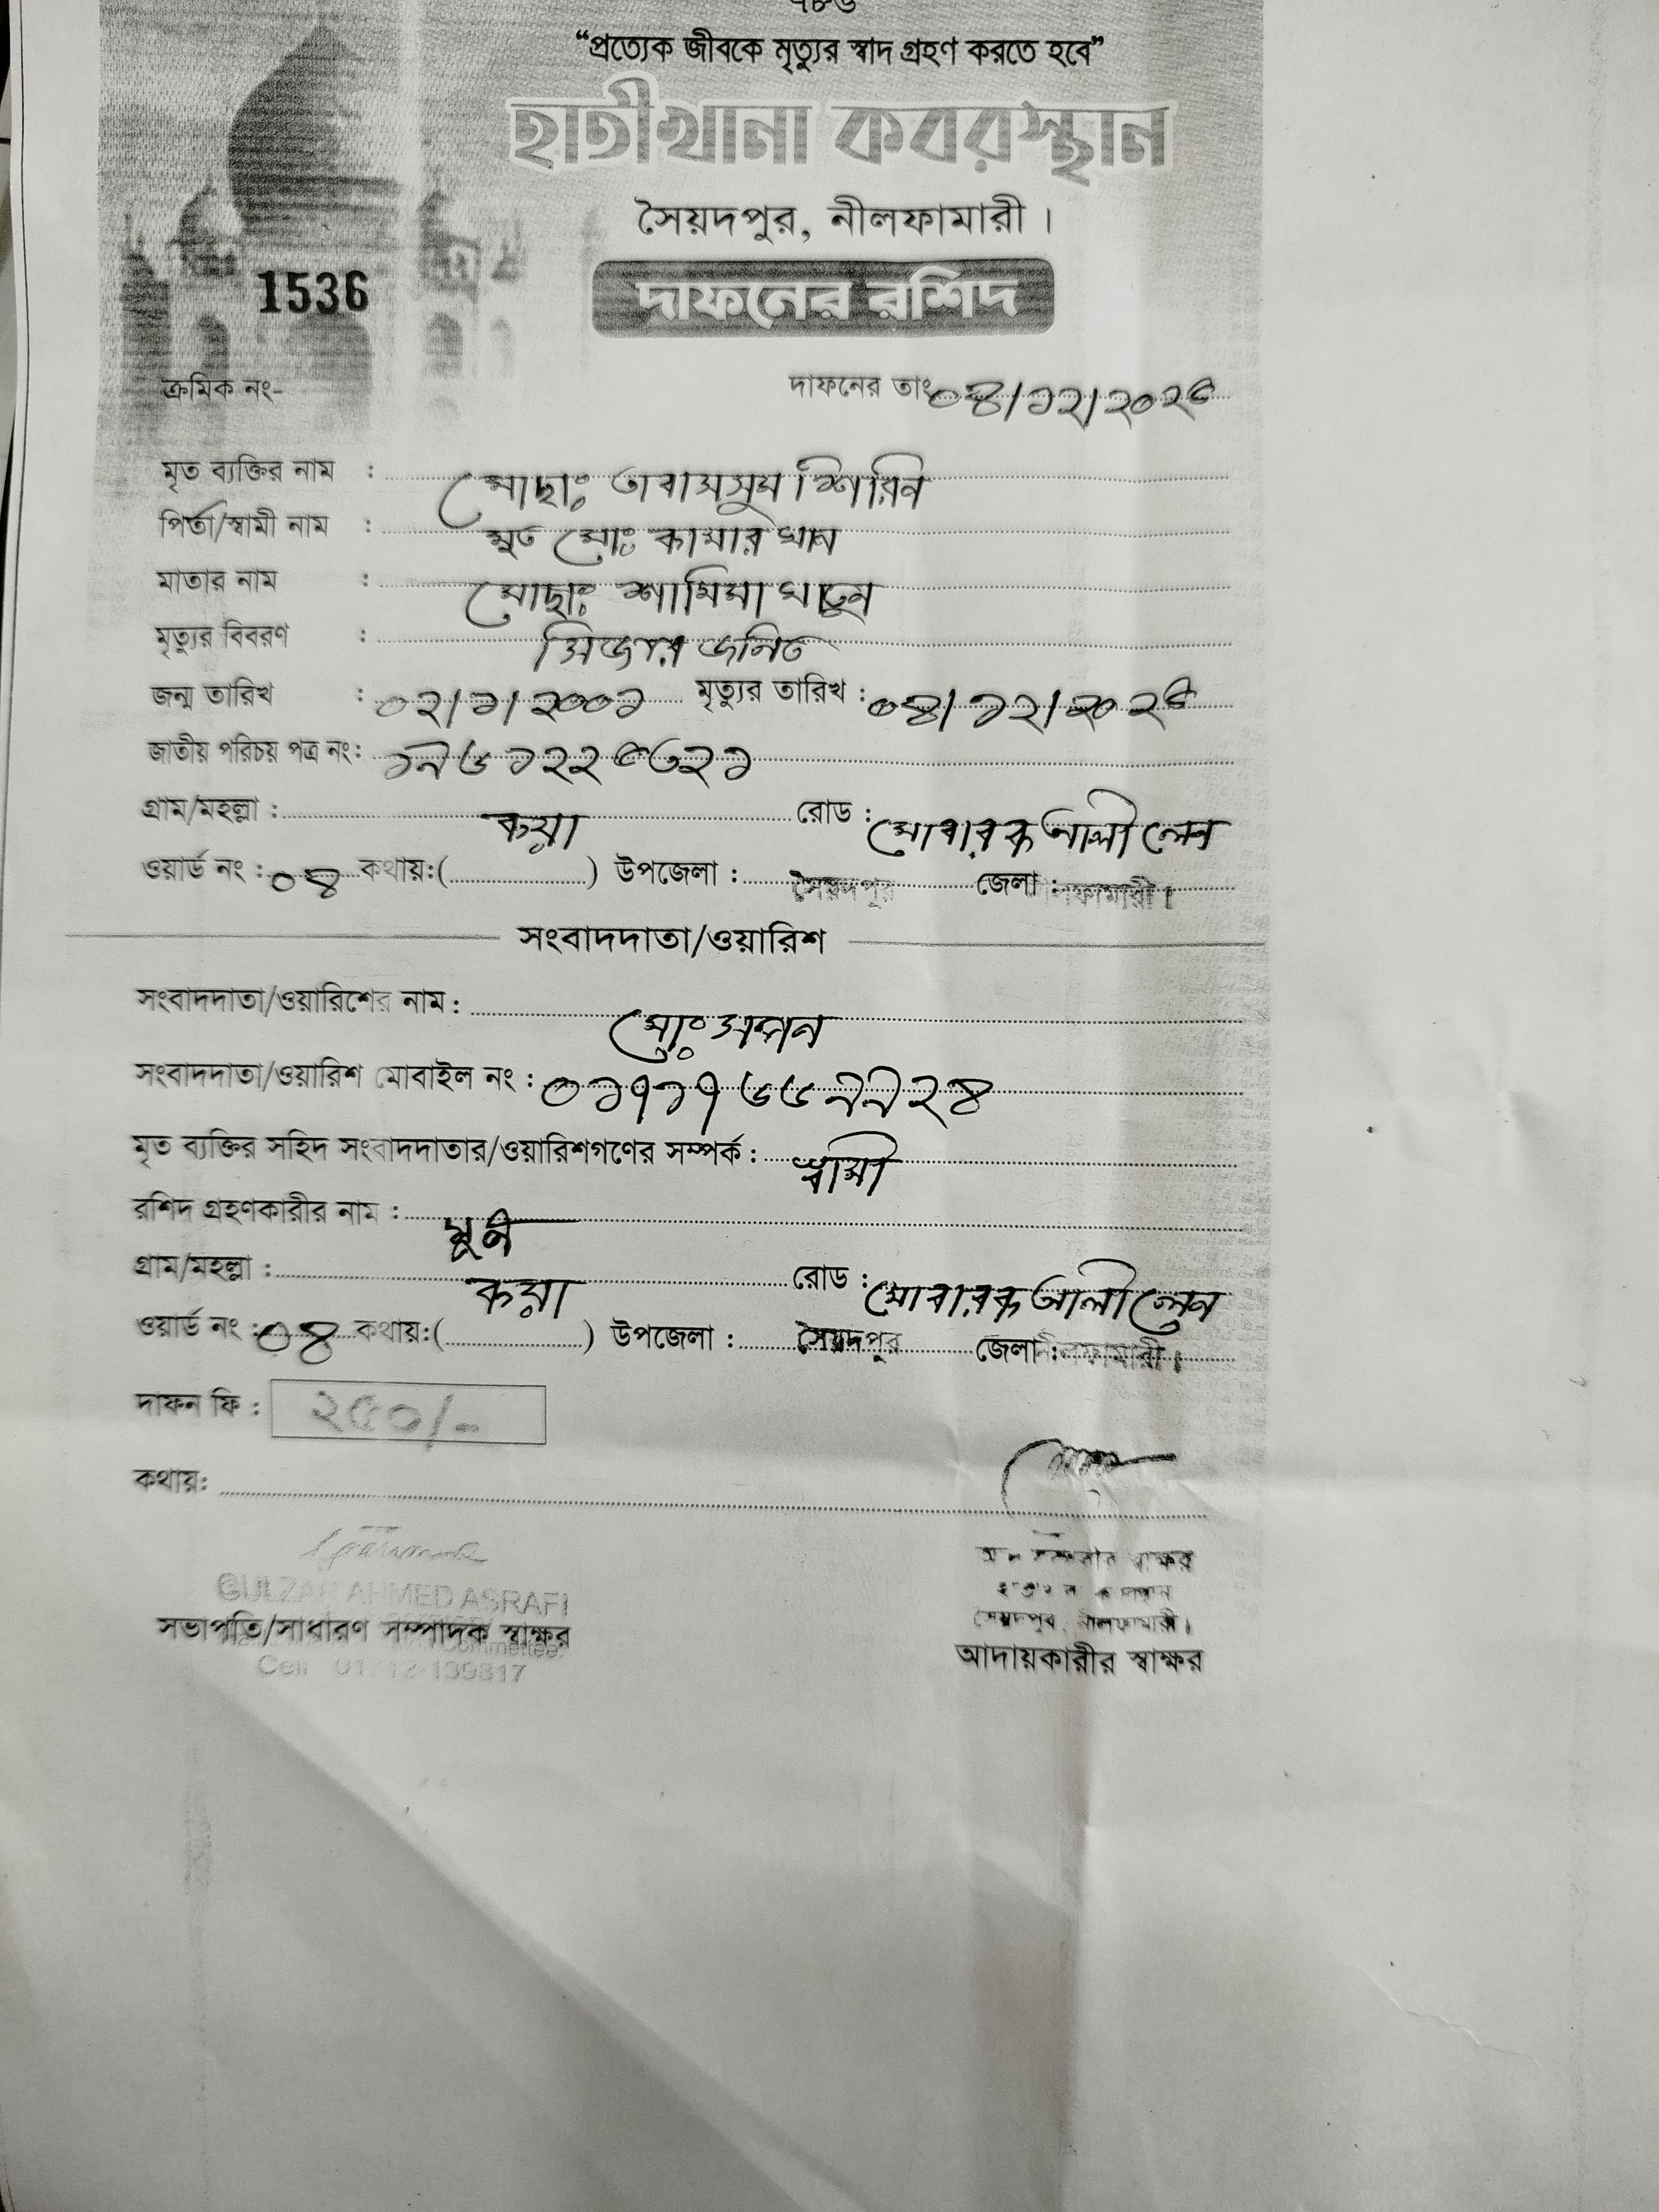 ৭৮৬
“প্রত্যেক জীবকে মৃত্যুর স্বাদ গ্রহণ করতে হবে”
হাতীখানা কবরস্থান
সৈয়দপুর, নীলফামারী।
1536
দাফনের রশিদ
ক্রমিক নং- দাফনের তাং ০৪/১২/২০২৫
মৃত ব্যক্তির নাম : মোছাঃ তাবাসসুম শিরিন
পিতা/স্বামী নাম : মৃত মোঃ কামার খান
মাতার নাম : মোছাঃ শামিমা খাতুন
মৃত্যুর বিবরণ : সিজার জনিত
জন্ম তারিখ : ০২/১/২০০১ মৃত্যুর তারিখ : ০৪/১২/২০২৫
জাতীয় পরিচয় পত্র নং: ১৯৬১২২৫৩২১
গ্রাম/মহল্লা : কয়া রোড : মোবারক আলী লেন
ওয়ার্ড নং : ০৪ কথায়:( ) উপজেলা : সৈয়দপুর জেলা : নীলফামারী।
সংবাদদাতা/ওয়ারিশ
সংবাদদাতা/ওয়ারিশের নাম : মোঃ
সংবাদদাতা/ওয়ারিশ মোবাইল নং : ০১৭১৭৬৬৯৯২৪
মৃত ব্যক্তির সহিদ সংবাদদাতার/ওয়ারিশগণের সম্পর্ক : স্বামী
রশিদ গ্রহণকারীর নাম :
গ্রাম/মহল্লা : কয়া রোড : মোবারক আলী লেন
ওয়ার্ড নং : ০৪ কথায়:( ) উপজেলা : সৈয়দপুর জেলা : নীলফামারী।
দাফন ফি : ২৫০/-
কথায়:
GULZAR AHMED ASRAFI
সভাপতি/সাধারণ সম্পাদক স্বাক্ষর
Cell 01712-139817
স্বাক্ষর
সৈয়দপুর, নীলফামারী।
আদায়কারীর স্বাক্ষর